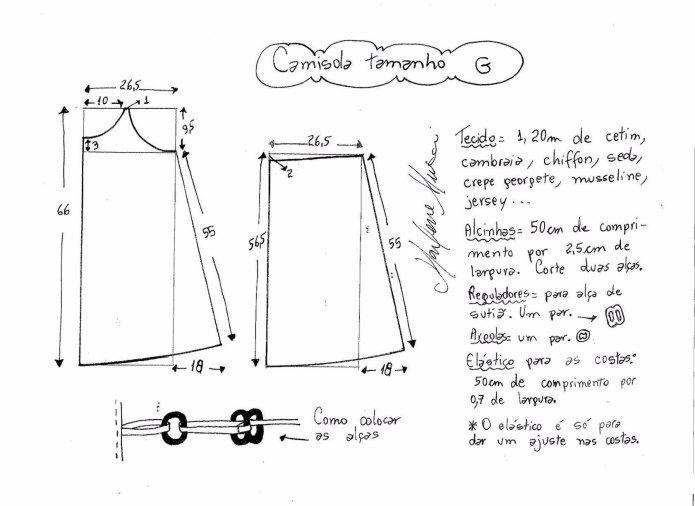 Camisola tamanho G
26,5
10
1
9,5
3
66
55
18
26,5
2
56,5
55
18
Marlene Mukai
Tecido= 1,20m de cetim,
cambraia, chiffon, seda,
crepe georgete, musseline,
jersey...
Alcinhas= 50cm de compri-
mento por 2,5cm de
largura. Corte duas alças.
Reguladores= para alça de
sutiã. Um par. →
Argolas= um par.
Elástico para as costas:
50cm de comprimento por
0,7 de largura.
* O elástico é só para
dar um ajuste nas costas.
Como colocar
as alças